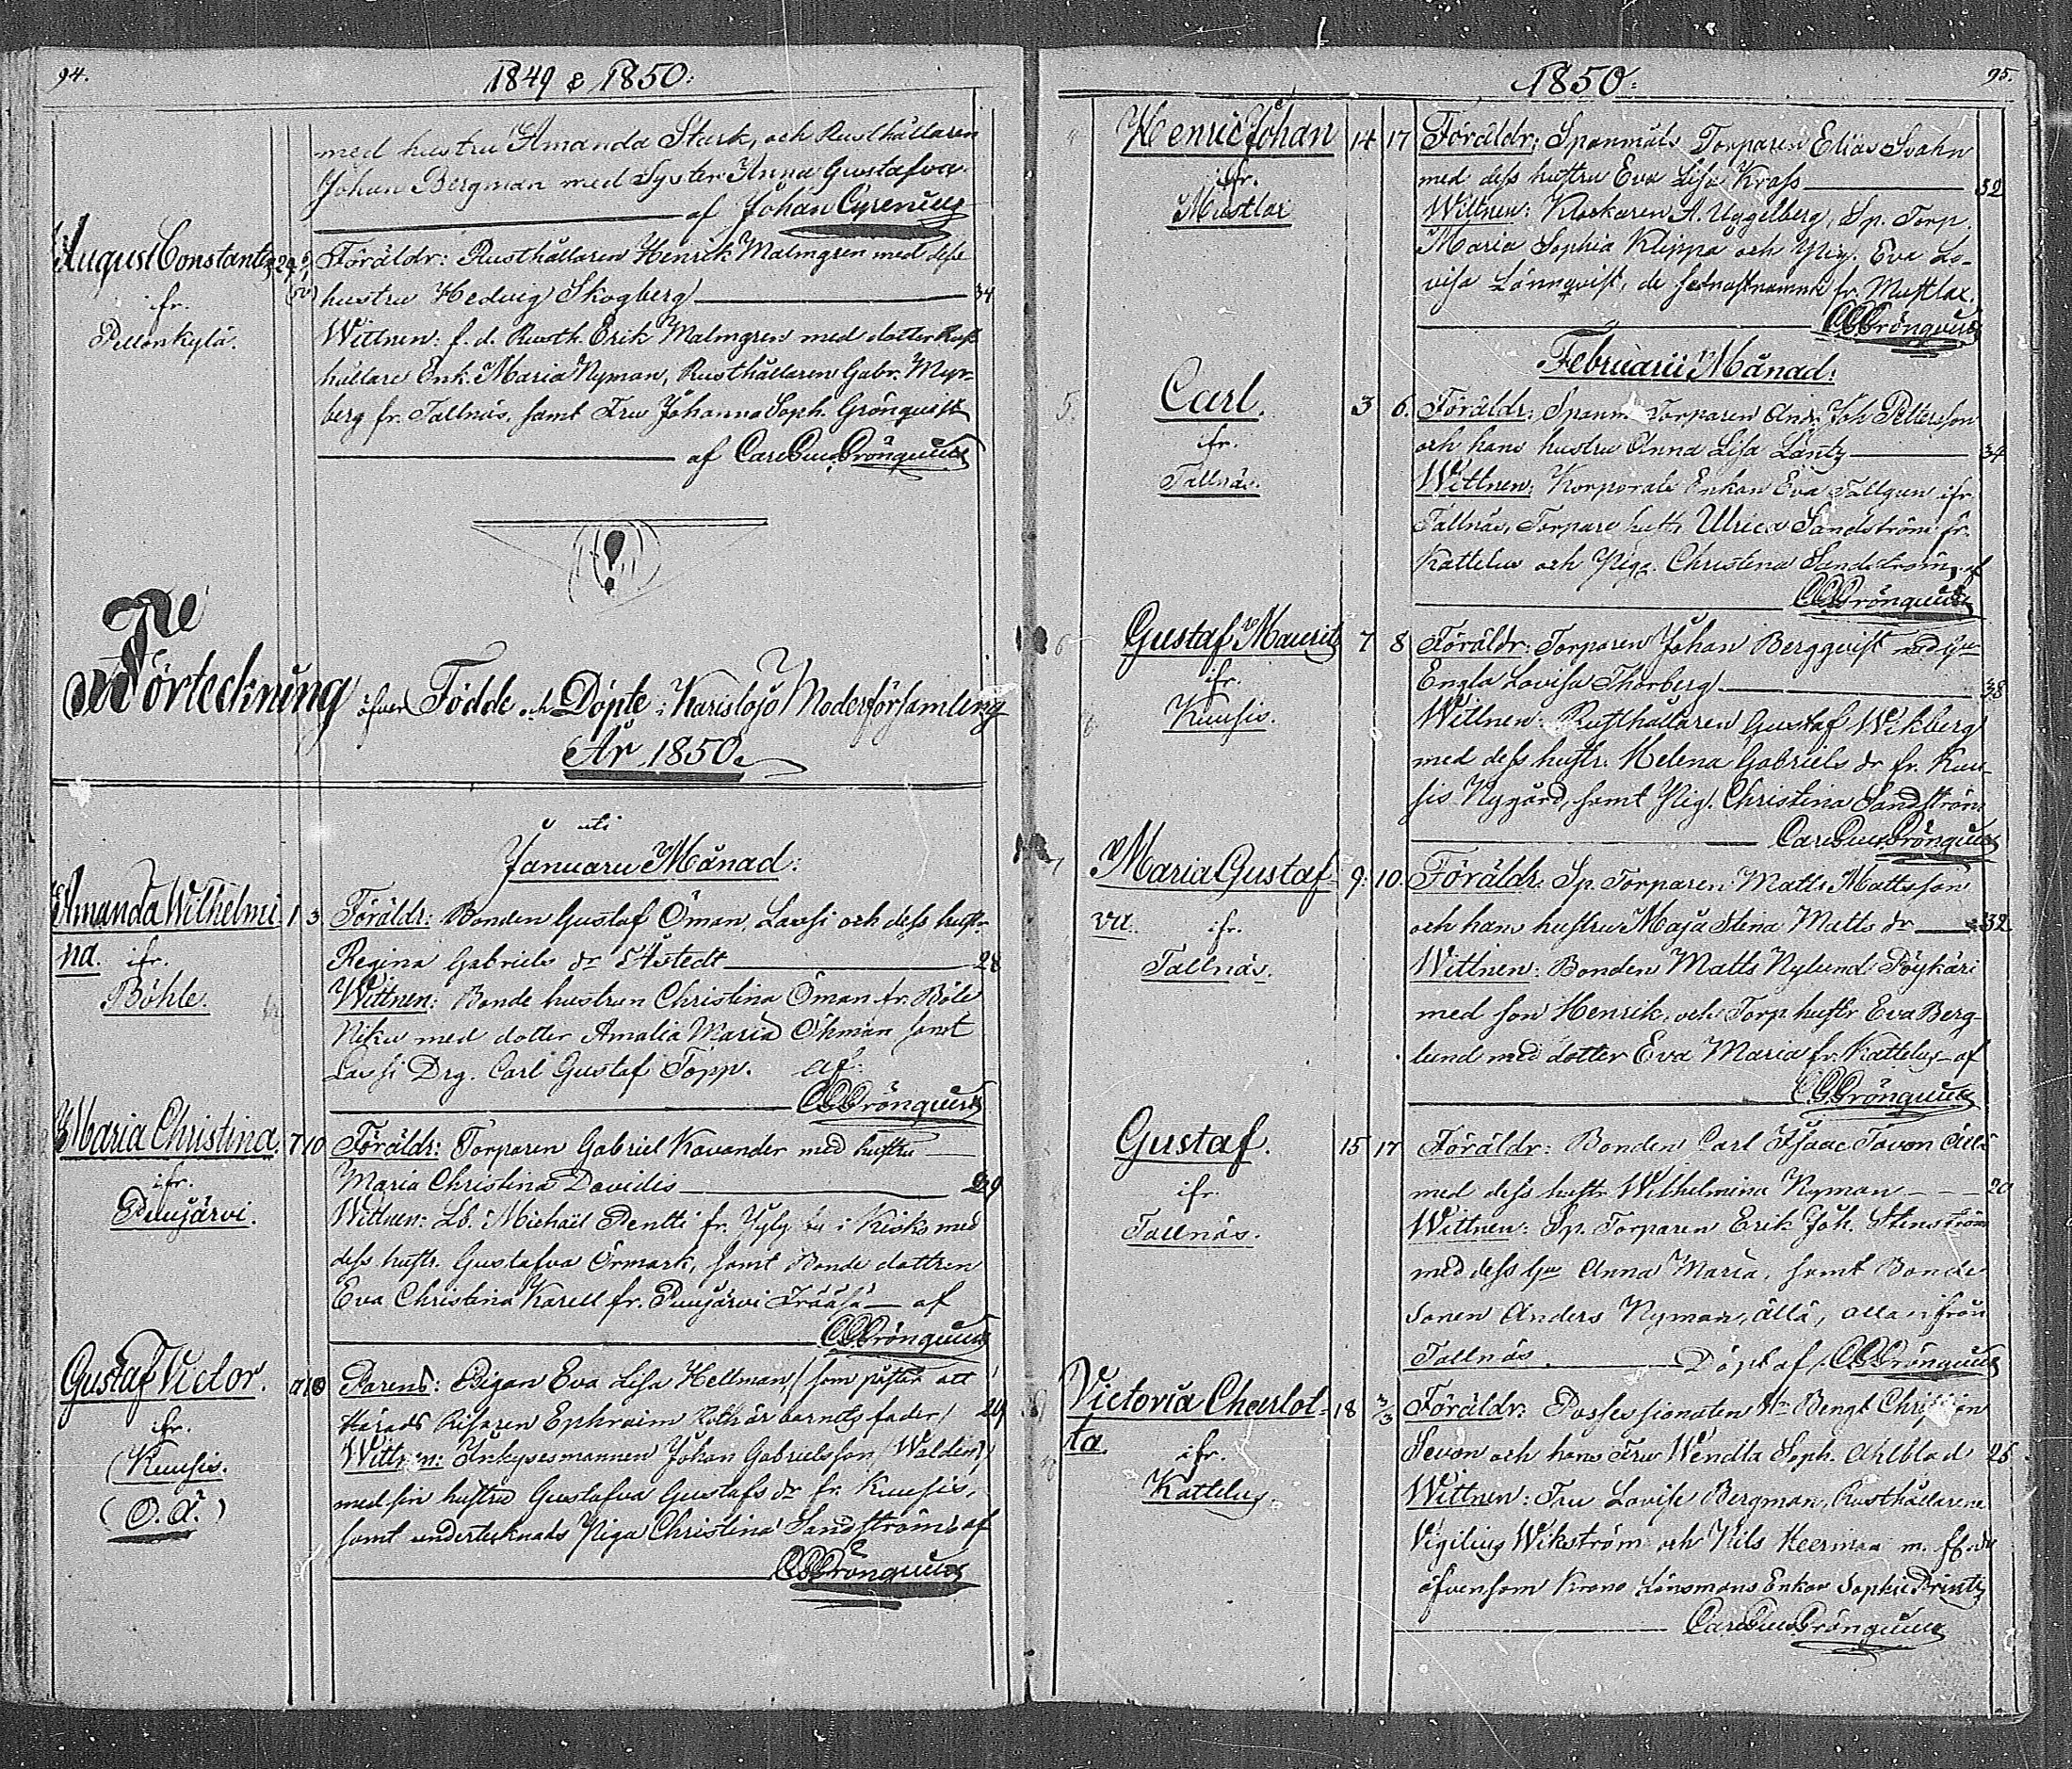 94.
1849 & 1850.
med hustru Amanda Stark, och Rusthållaren
Johan Bergman med Syster Anna Gustafva
af Johan Cyrenius
August Constantin
ifr.
Pellonkylä.
Föräldr: Rusthållaren Henrik Malmgren med dess
hustru Hedvig Skogberg 34
Wittnen: f. d. Rusth. Erik Malmgren med dotter Rust
hållare Enk. Maria Nyman, Rusthållaren Gabr. Myr-
berg fr. Tallnäs, samt Fru Johanna Soph. Grönqvist
af Carl Gust. Grönqvist
Förteckning öfver Födde och Döpte i Karislojo Moderförsamling
År 1850.
uti
Januarii Månad:
Amanda Wilhelmi 1 3
na. ifr.
Böhle.
Föräldr: Bonden Gustaf Öman, Lassi och dess hustr.
Regina Gabriels dr Åstedt 28
Wittnen: Bonde hustrun Christina Öman fr. Böle
Niku med dotter Amalia Maria Öhman samt
Lassi Drg. Carl Gustaf Topp. af.
CGGrönqvist
Maria Christina. 7 10
ifr.
Puujärvi.
Föräldr: Torparen Gabriel Kavander med hustru
Maria Christina Davidis 29
Wittnen: Lb. Michaël Pentti fr. i Kisko med
dess hustr. Gustafva Örmark, samt Bonde dottren
Eva Christina Karell fr. Puujärvi af
CGGrönqvist
Gustaf Victor. 10
ifr.
Kuusis.
(O. Ä.)
Parens: Pigan Eva Lisa Hellman, (som påstår att
Härads Ephraim är barnets fader) 29
Wittnen: Inhysesmannen Johan Gabrielsson (Walden)
med sin hustru Gustafva Gustafs dr fr. Kuusis,
samt undertecknads Piga Christina Sandström, af
CGGrönqvist
1850. 95.
Henric Johan 14 17
ifr.
Mustlax
Föräldr: Spanmåls Torparen Elias Svahn
med dess hustru Eva Lisa Krass 32
Wittnen: Klockaren A. Uggelberg, Sp. Torp.
Maria Sophia Klippa och Pig. Eva Lo-
visa Lönnqvist, de sednastnamnde fr. Mustlax.
CGGrönqvist
Februarii Månad:
5. Carl. 3 6.
ifr.
Tallnäs.
Föräldr: Spanm. Torparen And. Joh Pettersson
och hans hustru Anna Lisa Lantz 34
Wittnen: Korporals Enkan Eva Tallgren ifr.
Tallnäs, Torpare hustr. Ulrica Sandström fr.
Kattelus och Piga. Christina Sandström, af
CGGrönqvist
Gustaf Maurits 7 8
ifr.
Kuusis.
Föräldr: Torparen Johan Bergqvist med Hu
Engla Lovisa Thorberg 38
Wittnen: Rusthållaren Gustaf Wikberg
med dess hustr. Helena Gabriels dr fr. Kuu-
sis Nygård, samt Pig. Christina Sandström
Carl Gust. Grönqvist
Maria Gustaf- 9. 10.
va. ifr.
Tallnäs.
Föräldr: Sp. Torparen Matts Mattsson
och hans hustru Maja Stena Matts dr 32
Wittnen: Bonden Matts Nylund Pöykäri
med son Henrik, och Torp. hustr Eva Berg-
lund med dotter Eva Maria fr. Kattelus af
CGGrönqvist
Gustaf. 15 17
ifr.
Tallnäs.
Föräldr: Bonden Carl Isaac Tavon Ällä
med dess hustr. Wilhelmina Nyman 20
Wittnen: Sp. Torparen Erik Joh. Stenström
med dess Hu Anna Maria, samt Bonde
sonen Anders Nyman, ällä, alla ifrån
Tallnäs. Döpt af CGGrönqvist
Victoria Charlot- 18 3/3
ta. ifr.
Kattelus.
Föräldr: Possessionaten Hr Bengt Christian
Sevon och hans Fru Wendla Soph. Ahlblad 25
Wittnen: Fru Lovise Bergman, Rusthållarene
Vigilius Wikström och Nils Heerman m.
äfvensom Krono Länsmans Enkan Sophie Printz
Carl Gust. Grönqvist